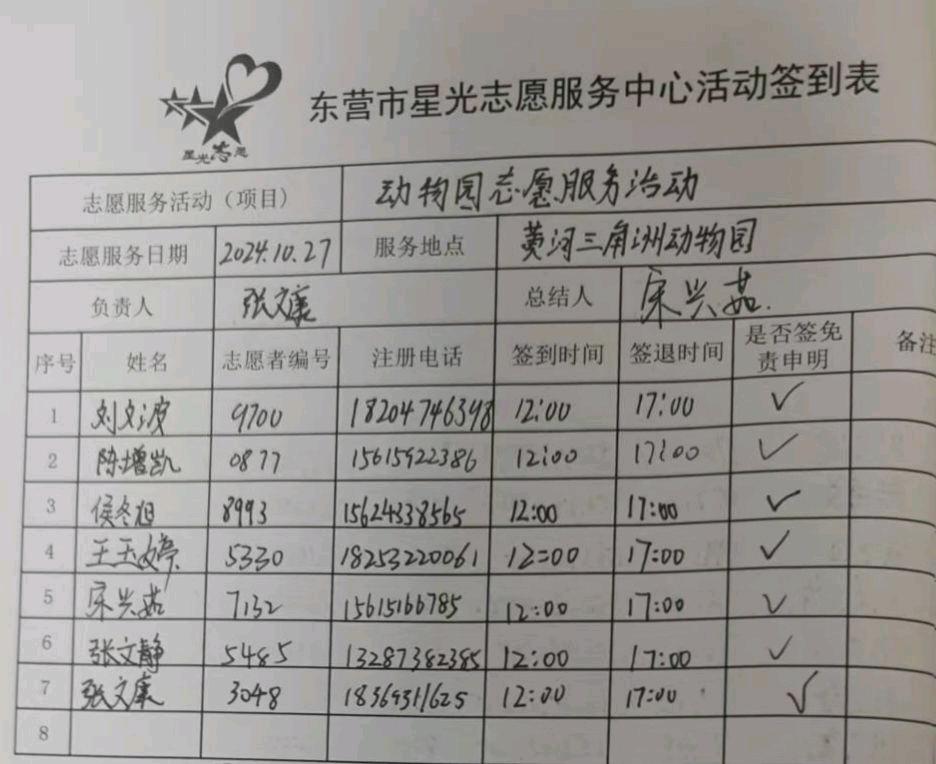 星光志愿
东营市星光志愿服务中心活动签到表
志愿服务活动（项目） 动物园志愿服务活动
志愿服务日期 2024.10.27 服务地点 黄河三角洲动物园
负责人 张文康 总结人 宋兴茹.
序号 姓名 志愿者编号 注册电话 签到时间 签退时间 是否签免责申明 备注
1 刘文波 9700 18204746398 12:00 17:00 ✓
2 陈增凯 0877 15615922386 12:00 17:00 ✓
3 侯冬旭 8993 15624338565 12:00 17:00 ✓
4 王玉婷 5330 18253220061 12:00 17:00 ✓
5 宋兴茹 7132 15615166785 12:00 17:00 ✓
6 张文静 5485 13287382385 12:00 17:00 ✓
7 张文康 3048 18369311625 12:00 17:00 ✓
8